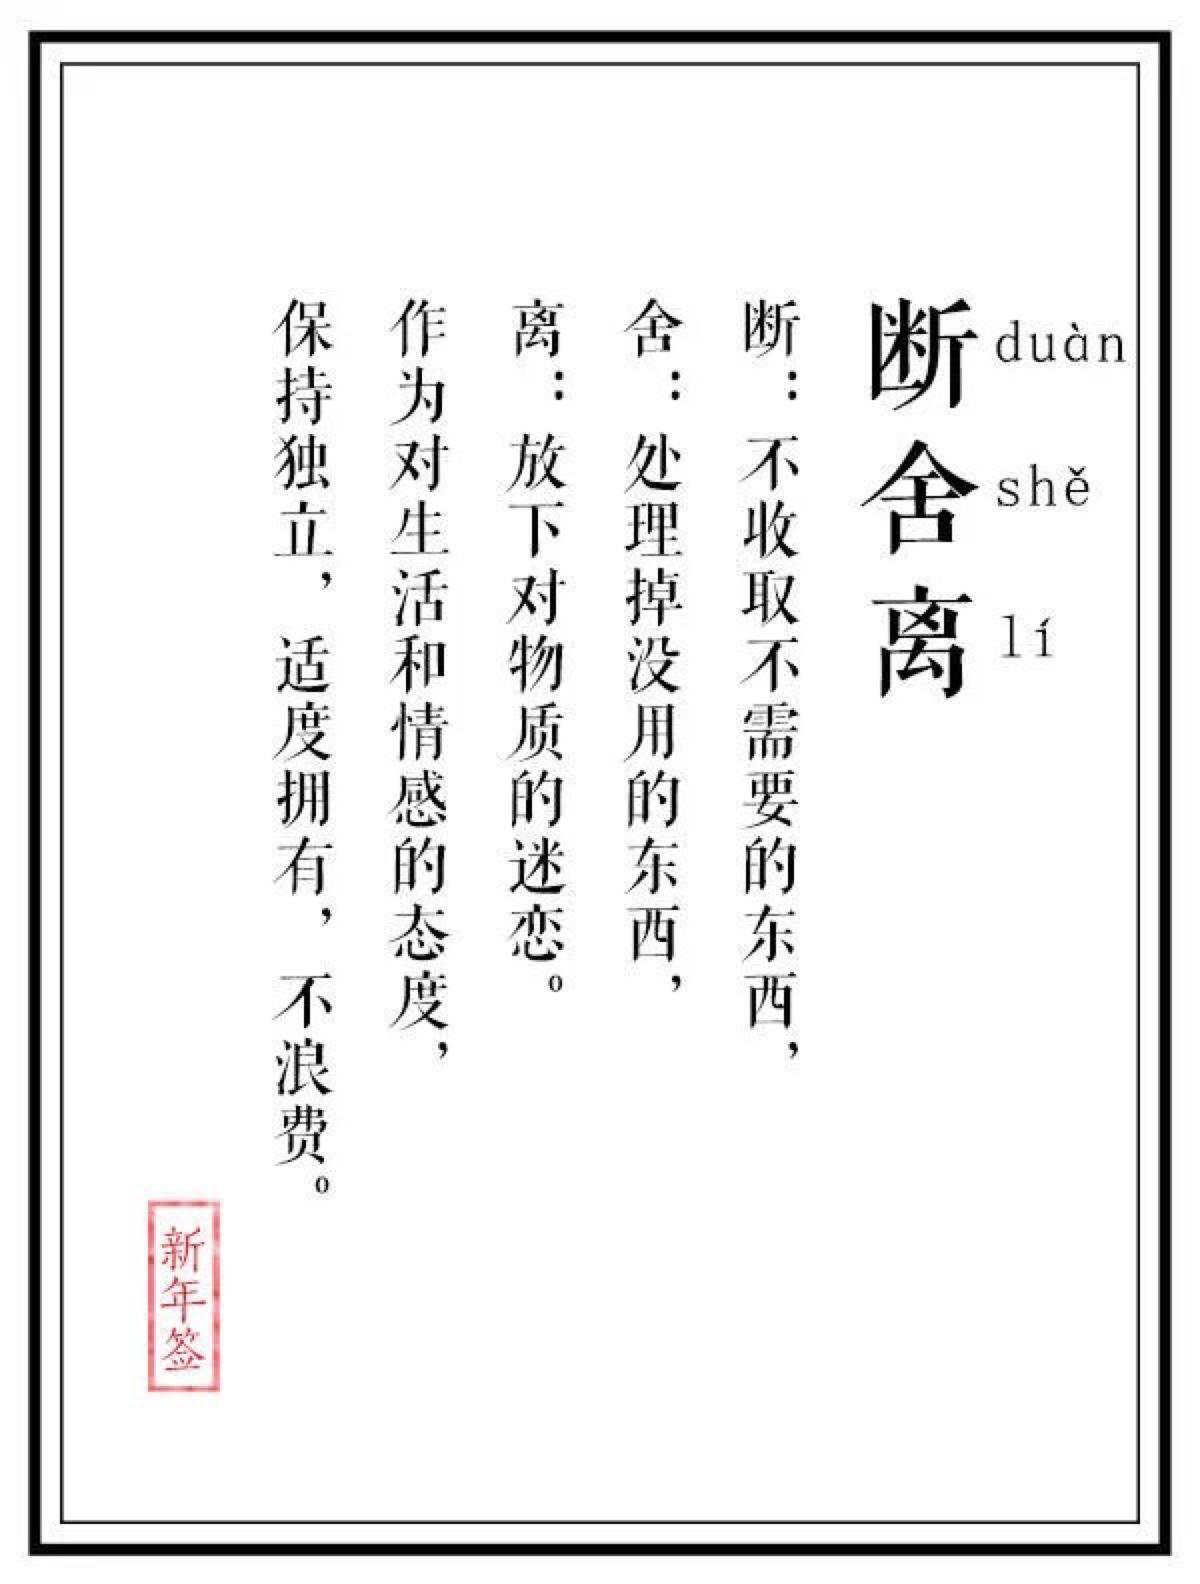 断舍离
duàn
shě
lí
断：不收取不需要的东西，
舍：处理掉没用的东西，
离：放下对物质的迷恋。
作为对生活和情感的态度，
保持独立，适度拥有，不浪费。
新年签